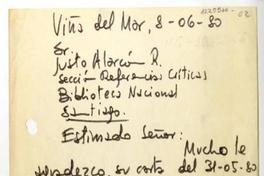 Viña del Mar, 8-06-80
Sr.
Justo Alarcón R.
Sección Referencias Críticas
Biblioteca Nacional
Santiago.
Estimado Señor:
Mucho le
agradezco su carta del 31-05-80